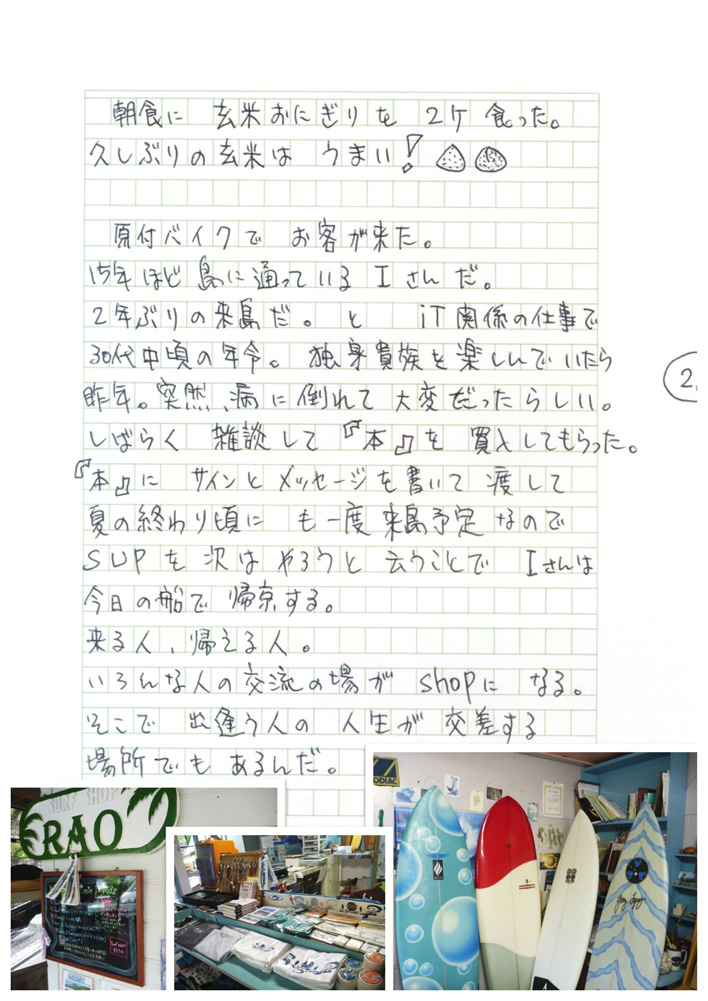 朝食に 玄米おにぎりを 2ケ 食った。
久しぶりの玄米は うまい!
原付バイクで お客が来た。
15年ほど 島に通っている Iさんだ。
2年ぶりの来島だ。と iT関係の仕事で
30代中頃の年令。独身貴族を楽しんでいたら
昨年。突然、病に倒れて 大変だったらしい。
しばらく 雑談して『本』を 買入してもらった。
『本』に サインとメッセージを書いて 渡して
夏の終わり頃に も一度 来島予定なので
SUPを 次は やろうと 云うことで Iさんは
今日の船で 帰京する。
来る人、帰える人。
いろんな人の交流の場が shopに なる。
そこで 出逢う人の 人生が 交差する
場所でも あるんだ。
2.
SURF SHOP
RAO
ZODIAC